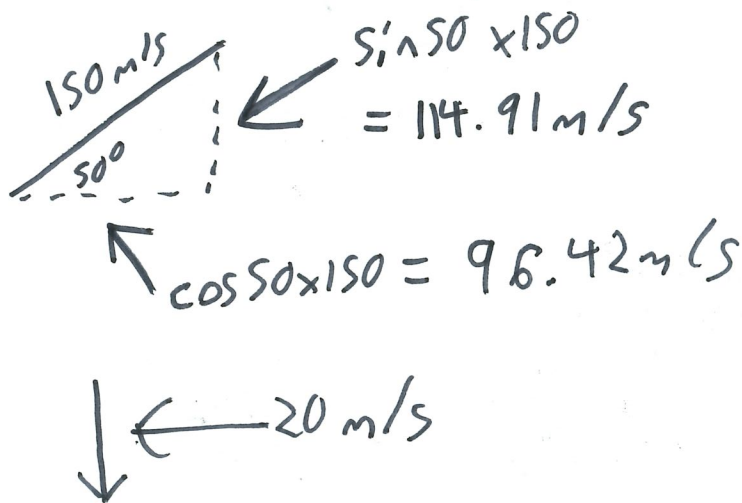 150 m/s
50°
sin50 x150
= 114.91 m/s
cos50x150 = 96.42 m/s
20 m/s